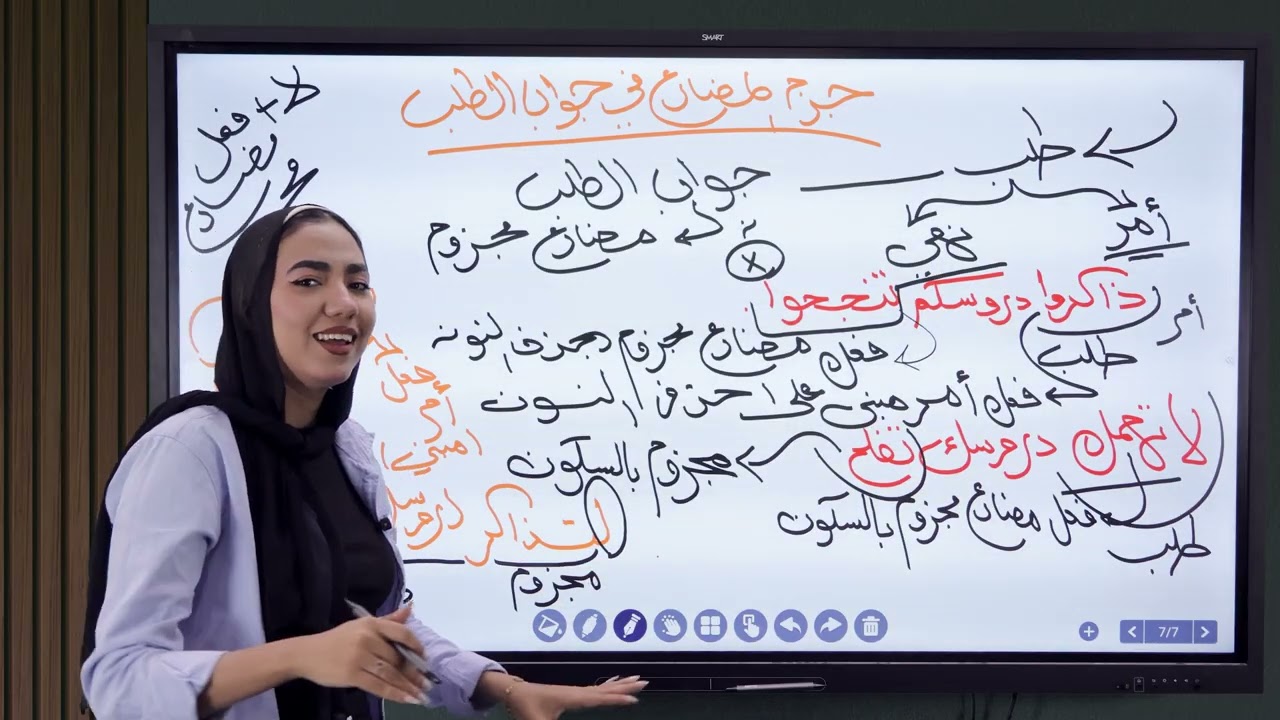 SMART
جزم المضارع في جواب الطلب
لا + فعل مضارع
طلب ـــــ جواب الطلب
أمر نهي
مضارع مجزوم
x
أمر ذاكروا دروسكم تنجحوا
طلب فعل مضارع مجزوم بحذف النون
فعل أمر مبني على حذف النون
لا تهمل دروسك تفلح مجزوم بالسكون
طلب فعل مضارع مجزوم بالسكون
فعل
أمر
(مبني)
لتذاكر
مجزوم
7/7